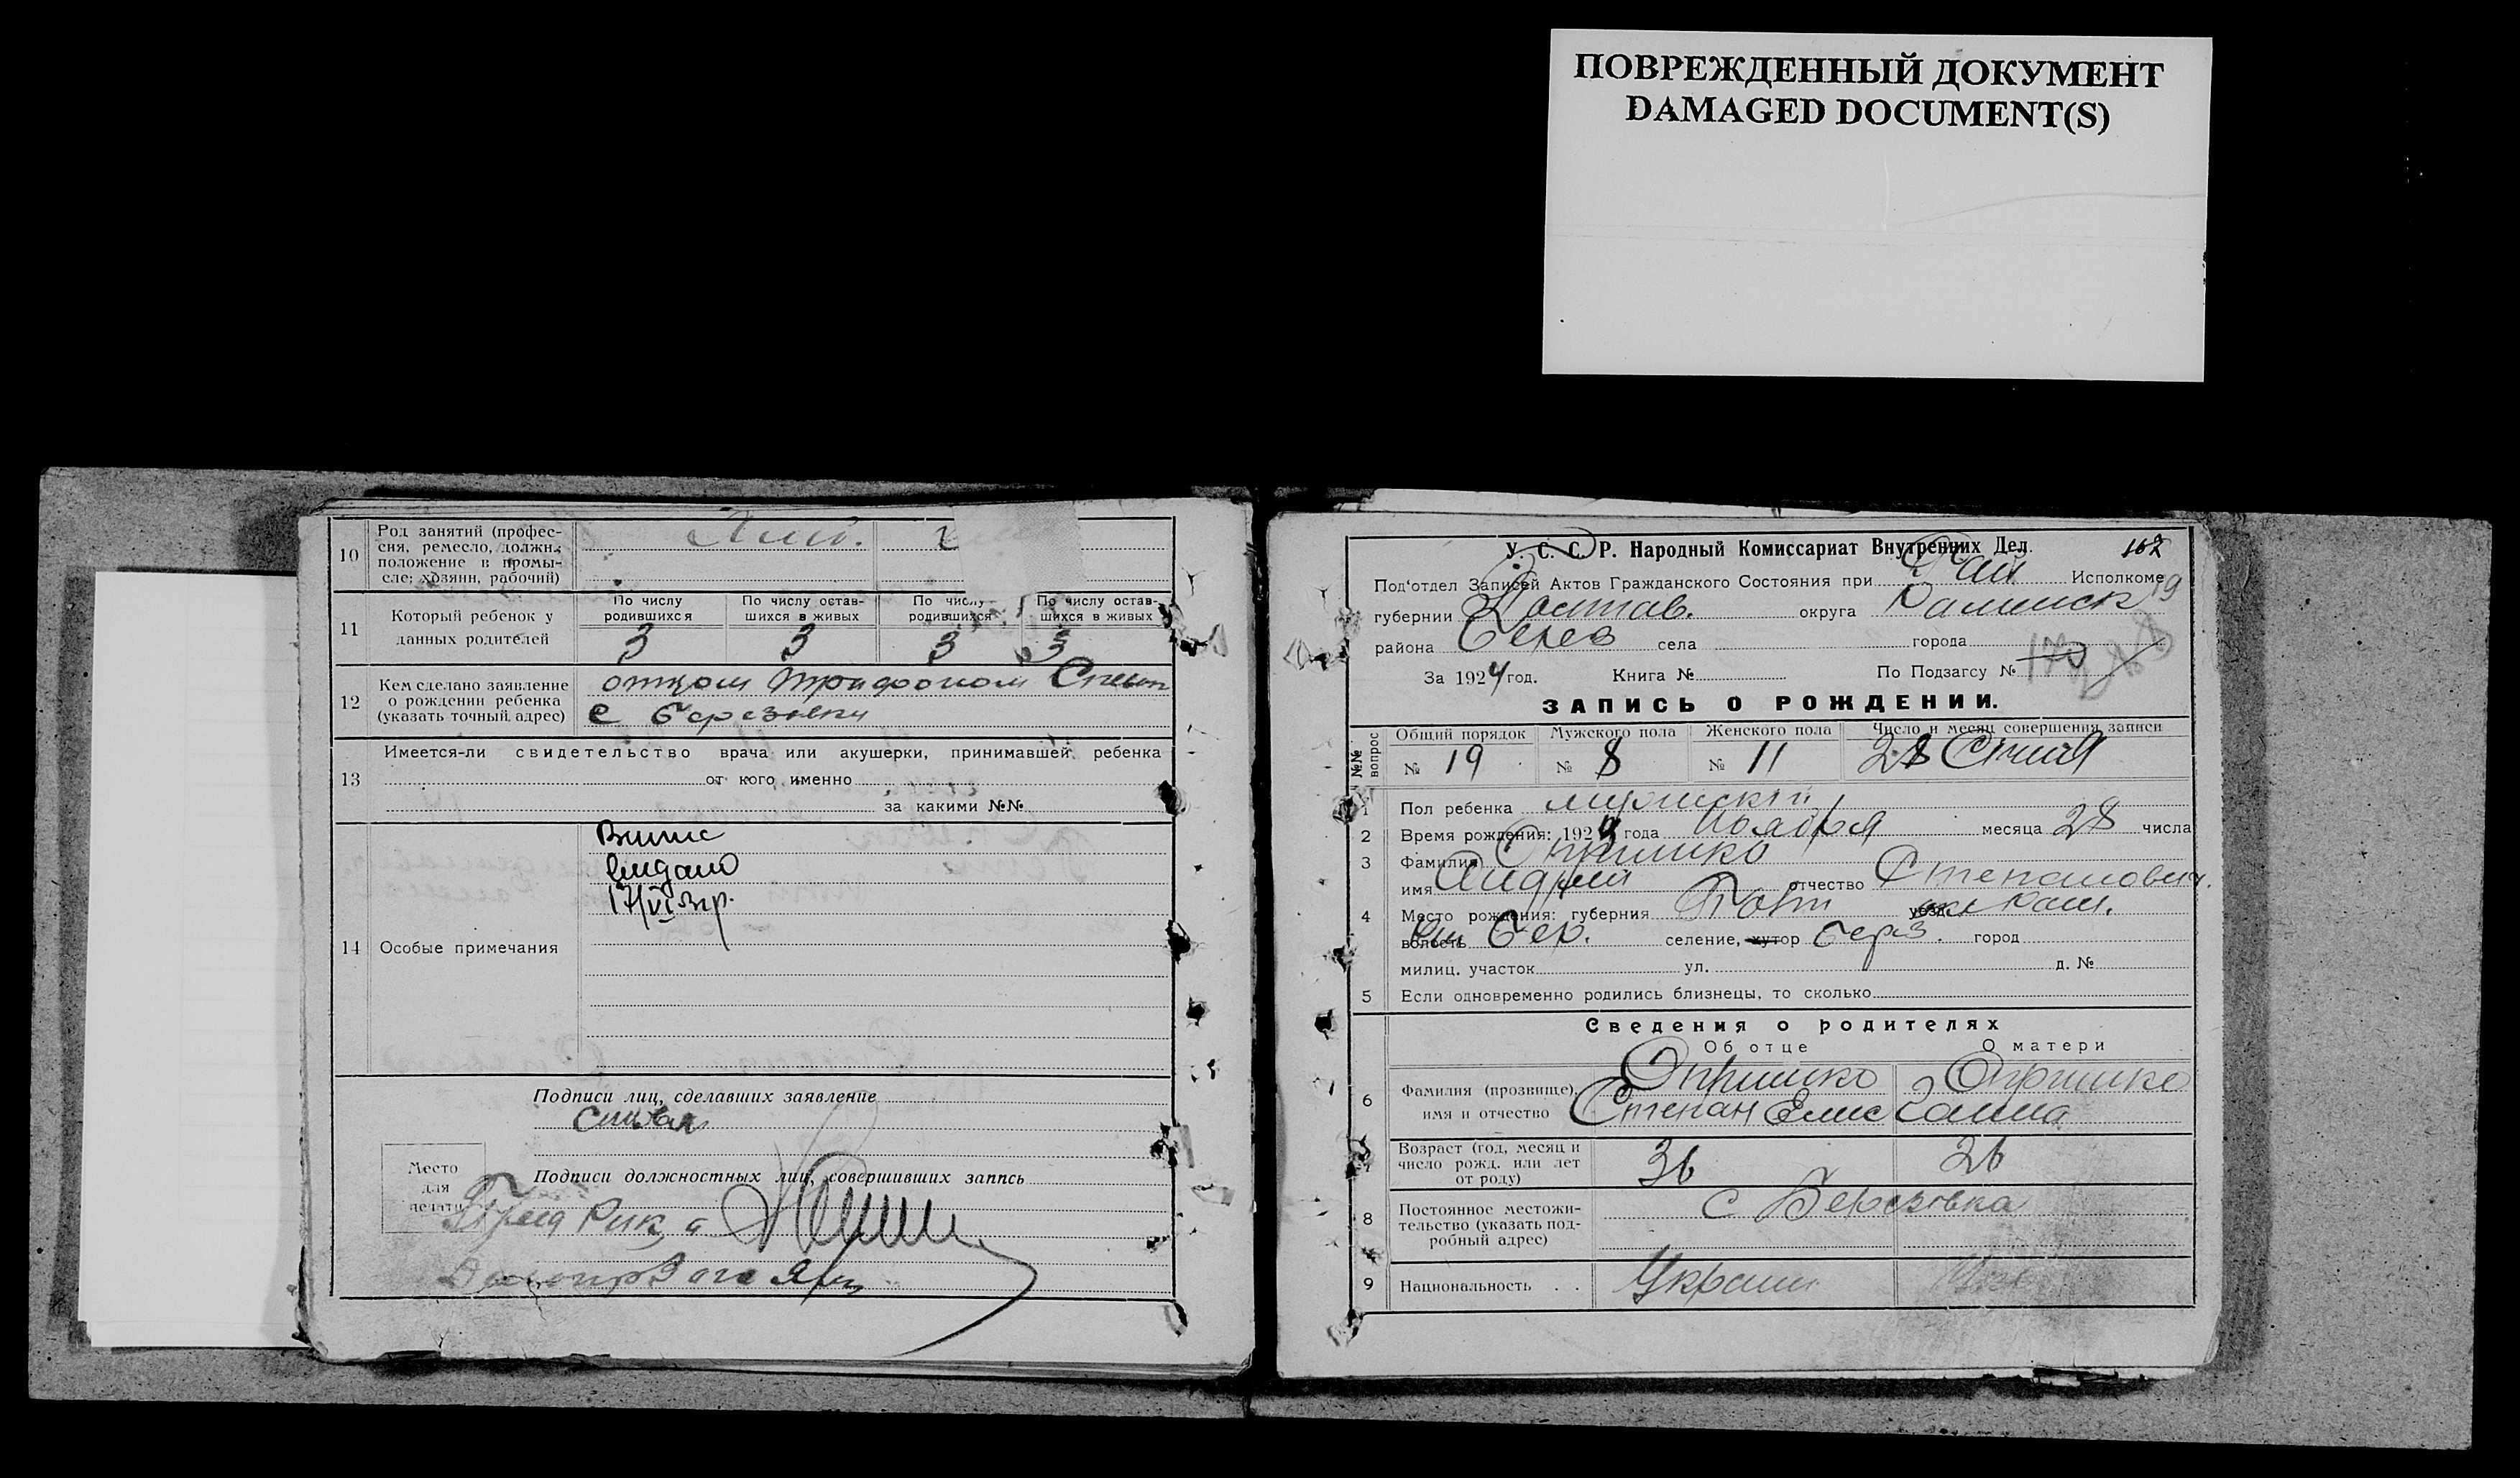 ПОВРЕЖДЕННЫЙ ДОКУМЕНТ
DAMAGED DOCUMENT(S)
10 Род занятий (профес-
сия, ремесло, должн.;
положение в промы-
сле: хозяин, рабочий)
11 Который ребенок у
данных родителей
По числу родившихся 3
По числу остав-шихся в живых 3
По числу родившихся 3
По числу остав-шихся в живых 3
12 Кем сделано заявление
о рождении ребенка
(указать точный адрес)
отцом Трифоном
с Березовки
13 Имеется-ли свидетельство врача или акушерки, принимавшей ребенка
от кого именно
за какими №№
14 Особые примечания
Випис
видано
17/VI
Подписи лиц, сделавших заявление
Подписи должностных лиц, совершивших запись
Место
для
печати
Рик а
У. С. С. Р. Народный Комиссариат Внутренних Дел. 162
Под'отдел Записей Актов Гражданского Состояния при Рай Исполкоме
19
губернии Полтав. округа
района села города
За 1924 год. Книга № По Подзагсу № 170
ЗАПИСЬ О РОЖДЕНИИ.
№№ вопрос
Общий порядок Мужского пола Женского пола Число и месяц совершения записи
№ 19 № 8 № 11 28 Січня
1 Пол ребенка мужский
2 Время рождения: 1923 года ноября месяца 28 числа
3 Фамилия Опришко
имя Андрей отчество Степанович
4 Место рождения: губерния Полт уезд
волость селение, хутор Берз. город
милиц. участок ул. д. №
5 Если одновременно родились близнецы, то сколько
Сведения о родителях
Об отце О матери
6 Фамилия (прозвище),
имя и отчество
Опришко Опришко
Степан Елис Ганна
7 Возраст (год, месяц и
число рожд. или лет
от роду)
36 26
8 Постоянное местожи-
тельство (указать под-
робный адрес)
с Березовка
9 Национальность . . Украин